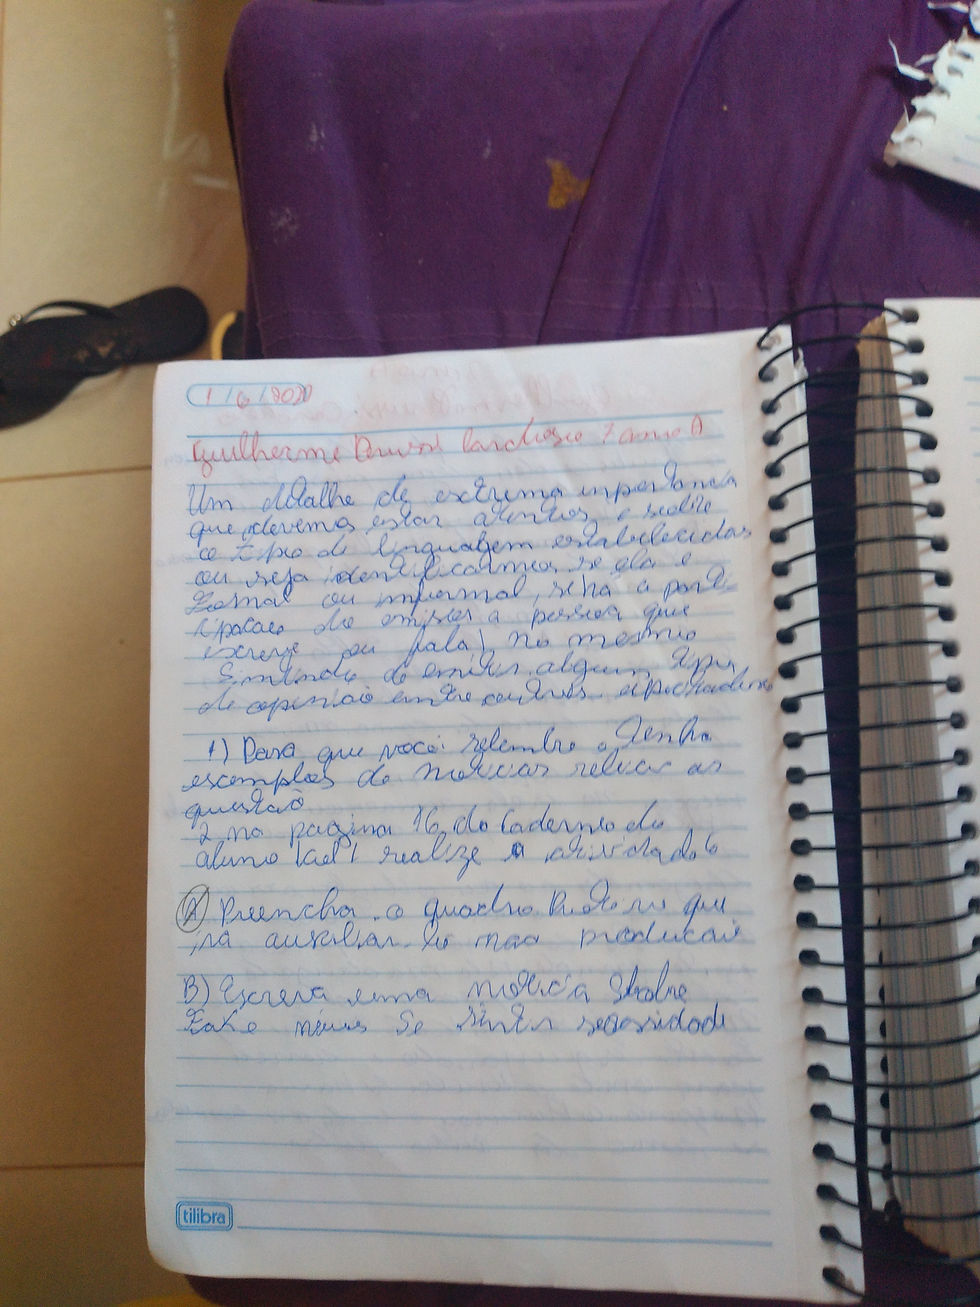 1/6/2020
Guilherme 7 ano A
Um detalhe de extrema importancia
que devemos estar atentos e sobre
o tipo de linguagem estabelecidas
ou seja identificarmos se ela e
formal ou informal, se ha a parti
cipacao do emissor a pessoa que
escreve ou fala) no mesmo
Sentindo de emitir algum tipo
de opinião entre outros
1) Para que você relembre e tenha
exemplos de noticias releia as
questão
2 na pagina 16 do Caderno do
aluno realize a atividade 6
A) Preencha o quadro que
ira auxiliar na producão
B) Escreva uma noticia Sobre
Fake news Se sentir nessesidade
tilibra